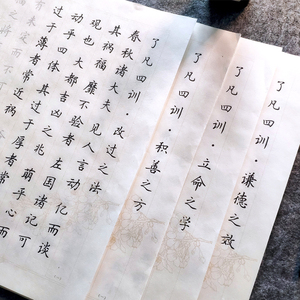 了凡四训·谦德之效
了凡四训·立命之学
了凡四训·积善之方
了凡四训·改过之法
春秋诸大夫见人言动亿而谈
其祸福靡不验者左国诸记可
观也大都吉凶之兆萌乎心而
动乎四体其过于厚者常
过于薄者常近祸